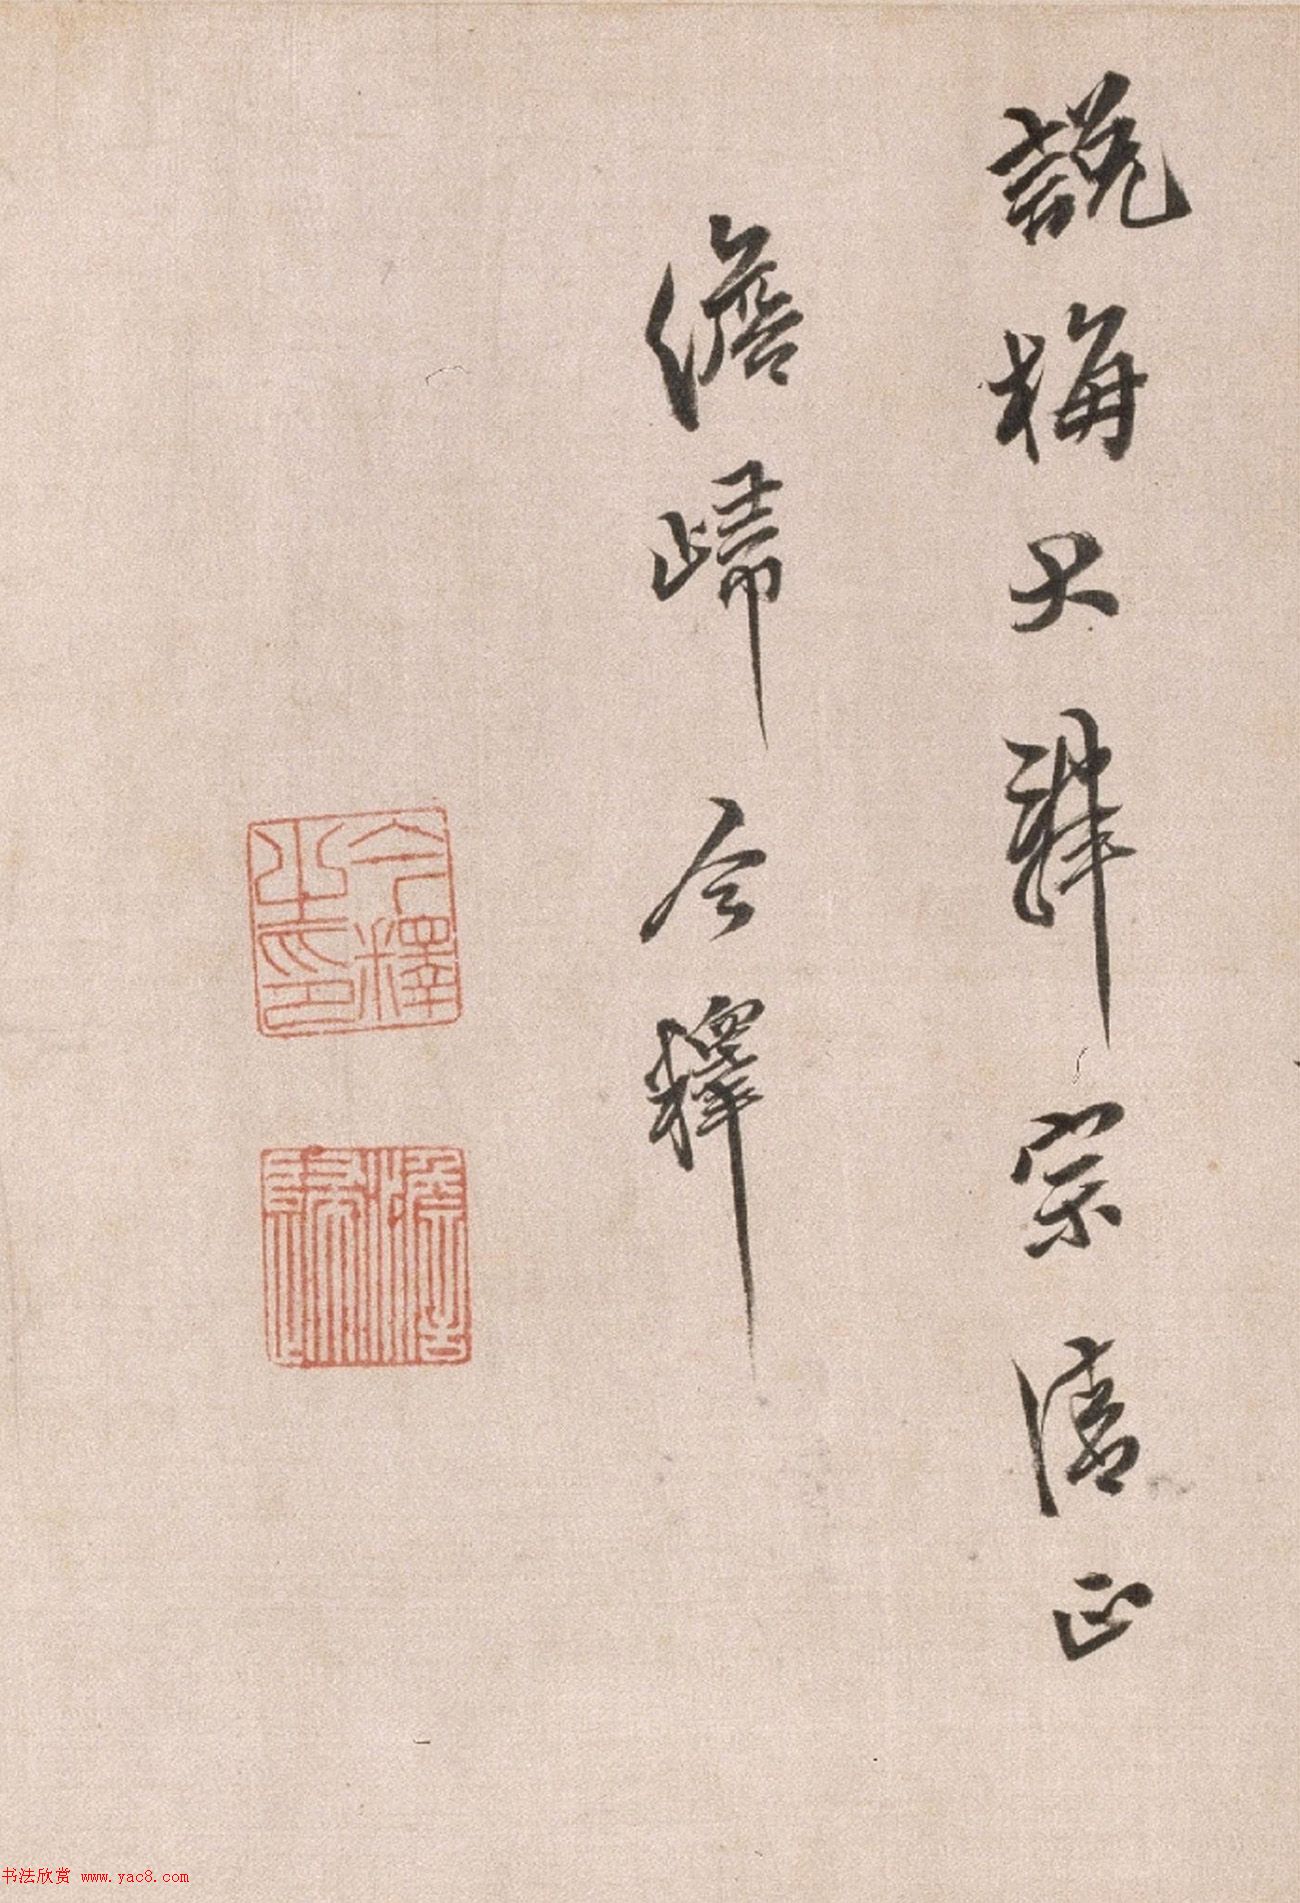 說梅大辭宗請正
澹歸今釋
今釋之印
澹歸
书法欣赏 www.yac8.com